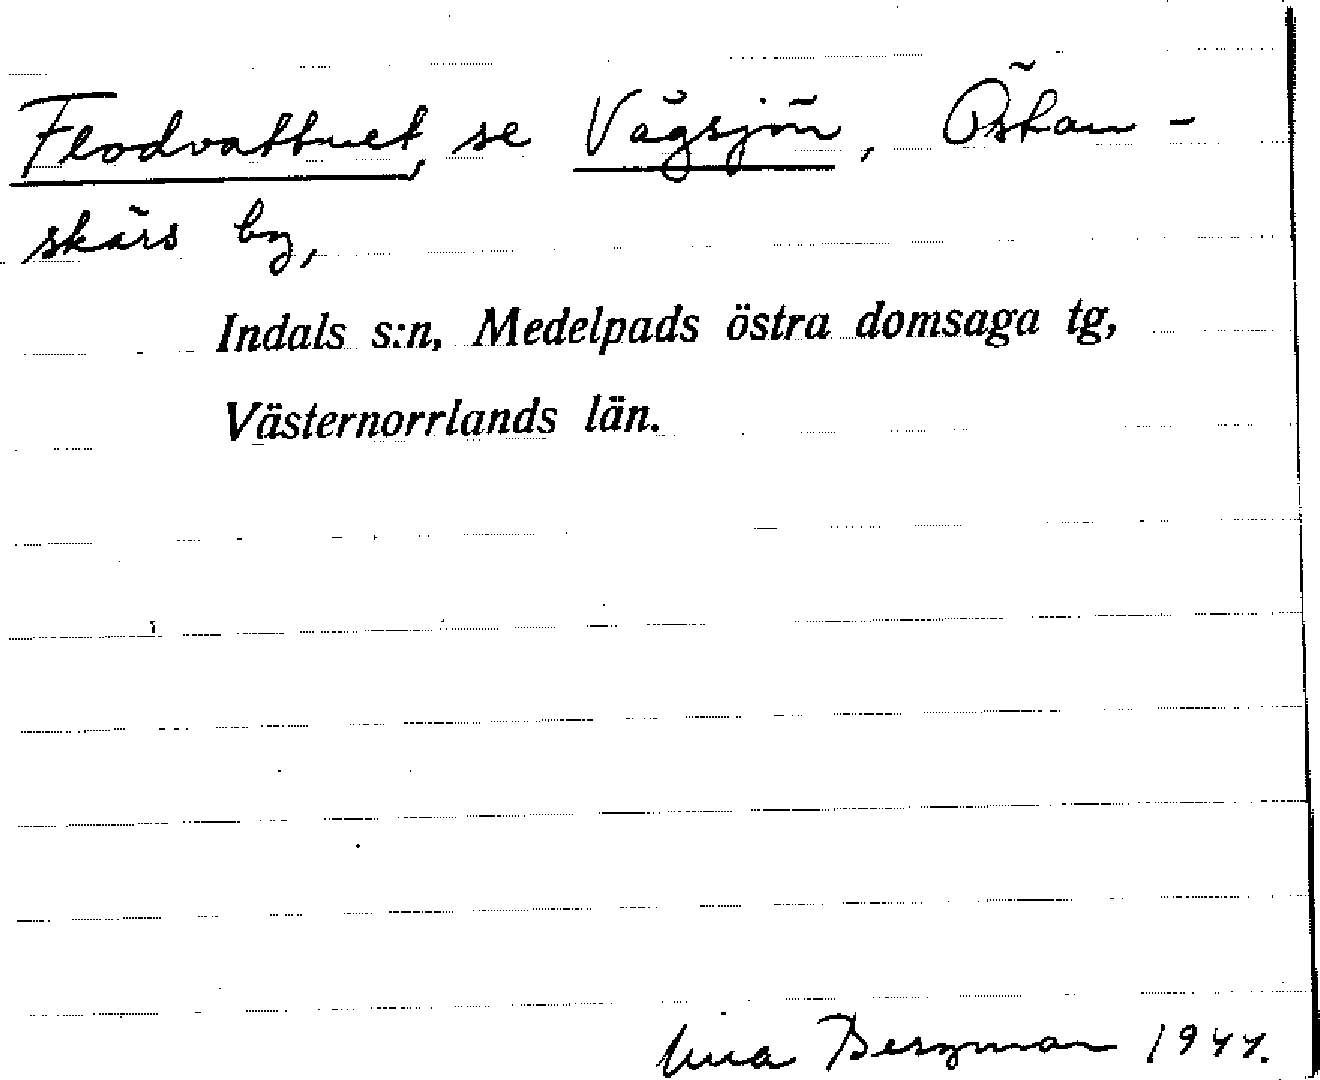 Flodvattnet, se Vägsjön, Östan-
skärs by,
Indals s:n, Medelpads östra domsaga tg,
Västernorrlands län.
Bergman 1944.